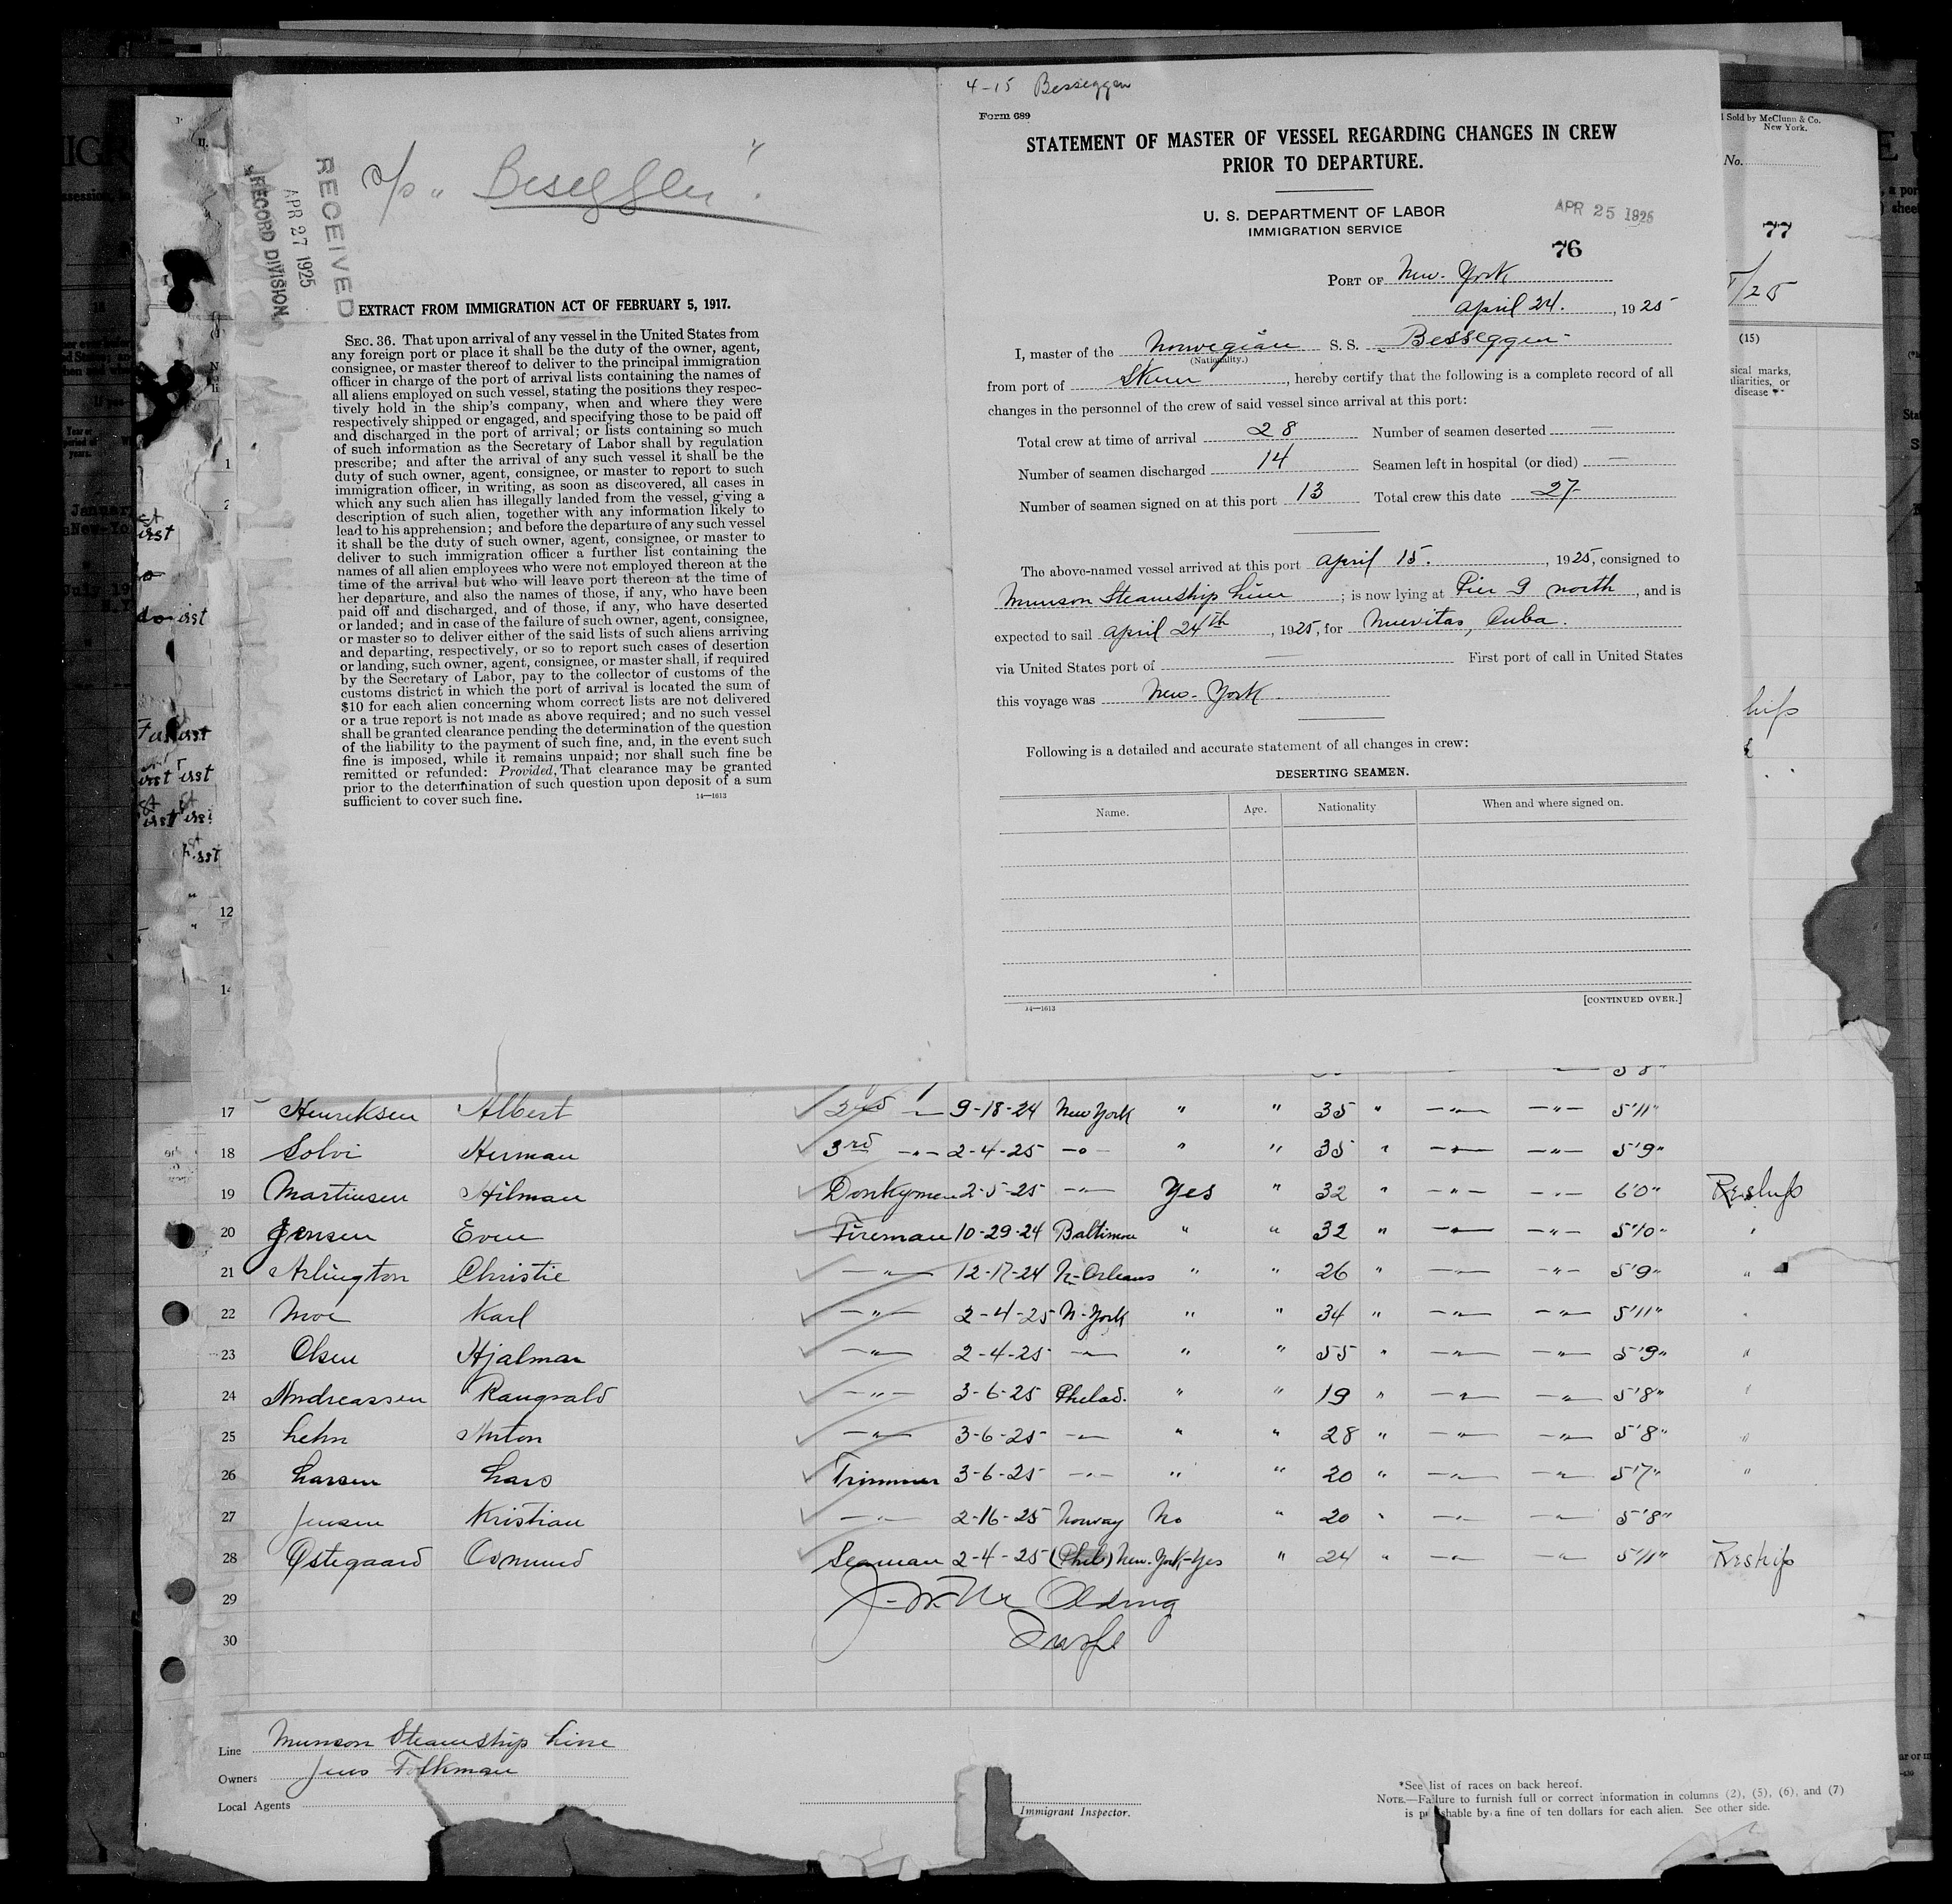 4-15 Besseggen
Form 689
STATEMENT OF MASTER OF VESSEL REGARDING CHANGES IN CREW
PRIOR TO DEPARTURE.
U. S. DEPARTMENT OF LABOR
IMMIGRATION SERVICE
APR 25 1925
76
PORT OF New-York
april 24. , 1925
I, master of the Norwegian S. S. Besseggen
(Nationality.)
from port of Skien , hereby certify that the following is a complete record of all
changes in the personnel of the crew of said vessel since arrival at this port:
Total crew at time of arrival 28 Number of seamen deserted —
Number of seamen discharged 14 Seamen left in hospital (or died) —
Number of seamen signed on at this port 13 Total crew this date 27-
The above-named vessel arrived at this port april 15. , 1925, consigned to
Munson Steamship Line ; is now lying at Pier 9 north , and is
expected to sail april 24th , 1925, for Nuevitas, Cuba.
via United States port of — First port of call in United States
this voyage was New-York
Following is a detailed and accurate statement of all changes in crew:
DESERTING SEAMEN.
Name. Age. Nationality When and where signed on.
14—1613 [CONTINUED OVER.]
RECEIVED
APR 27 1925
RECORD DIVISION
s/s "Beseggen".
EXTRACT FROM IMMIGRATION ACT OF FEBRUARY 5, 1917.
SEC. 36. That upon arrival of any vessel in the United States from
any foreign port or place it shall be the duty of the owner, agent,
consignee, or master thereof to deliver to the principal immigration
officer in charge of the port of arrival lists containing the names of
all aliens employed on such vessel, stating the positions they respec-
tively hold in the ship's company, when and where they were
respectively shipped or engaged, and specifying those to be paid off
and discharged in the port of arrival; or lists containing so much
of such information as the Secretary of Labor shall by regulation
prescribe; and after the arrival of any such vessel it shall be the
duty of such owner, agent, consignee, or master to report to such
immigration officer, in writing, as soon as discovered, all cases in
which any such alien has illegally landed from the vessel, giving a
description of such alien, together with any information likely to
lead to his apprehension; and before the departure of any such vessel
it shall be the duty of such owner, agent, consignee, or master to
deliver to such immigration officer a further list containing the
names of all alien employees who were not employed thereon at the
time of the arrival but who will leave port thereon at the time of
her departure, and also the names of those, if any, who have been
paid off and discharged, and of those, if any, who have deserted
or landed; and in case of the failure of such owner, agent, consignee,
or master so to deliver either of the said lists of such aliens arriving
and departing, respectively, or so to report such cases of desertion
or landing, such owner, agent, consignee, or master shall, if required
by the Secretary of Labor, pay to the collector of customs of the
customs district in which the port of arrival is located the sum of
$10 for each alien concerning whom correct lists are not delivered
or a true report is not made as above required; and no such vessel
shall be granted clearance pending the determination of the question
of the liability to the payment of such fine, and, in the event such
fine is imposed, while it remains unpaid; nor shall such fine be
remitted or refunded: Provided, That clearance may be granted
prior to the determination of such question upon deposit of a sum
sufficient to cover such fine. 14—1613
Sold by McClunn & Co.
New York.
No.
77
(15)
sical marks,
liarities, or
disease
5'8"
17 Henriksen Albert 2nd —"— 9-18-24 New York " " 35 " —"— —"— 5'11"
18 Solvi Herman 3rd —"— 2-4-25 —"— " " 35 " —"— —"— 5'9"
19 Martinsen Hilman Donkymen 2-5-25 —"— Yes " 32 " —"— —"— 6'0" Reship
20 Jensen Even Fireman 10-29-24 Baltimore " " 32 " —"— —"— 5'10" "
21 Arlington Christie —"— 12-17-24 N-Orleans " " 26 " —"— —"— 5'9" "
22 Moe Karl —"— 2-4-25 N-York " " 34 " —"— —"— 5'11" "
23 Olsen Hjalmar —"— 2-4-25 —"— " " 55 " —"— —"— 5'9" "
24 Andreassen Rangvald —"— 3-6-25 Philad. " " 19 " —"— —"— 5'8" "
25 Lehn Anton —"— 3-6-25 —"— " " 28 " —"— —"— 5'8" "
26 Larsen Lars Trimmer 3-6-25 —"— " " 20 " —"— —"— 5'7" "
27 Jensen Kristian —"— 2-16-25 Norway No " 20 " —"— —"— 5'8"
28 Østegaard Osmund Seaman 2-4-25 (Phil) New-York-Yes " 24 " —"— —"— 5'11" Reship
29
30
Line Munson Steamship Line
Owners Jens Folkman
Local Agents
Immigrant Inspector.
*See list of races on back hereof.
NOTE.—Failure to furnish full or correct information in columns (2), (5), (6), and (7)
is punishable by a fine of ten dollars for each alien. See other side.